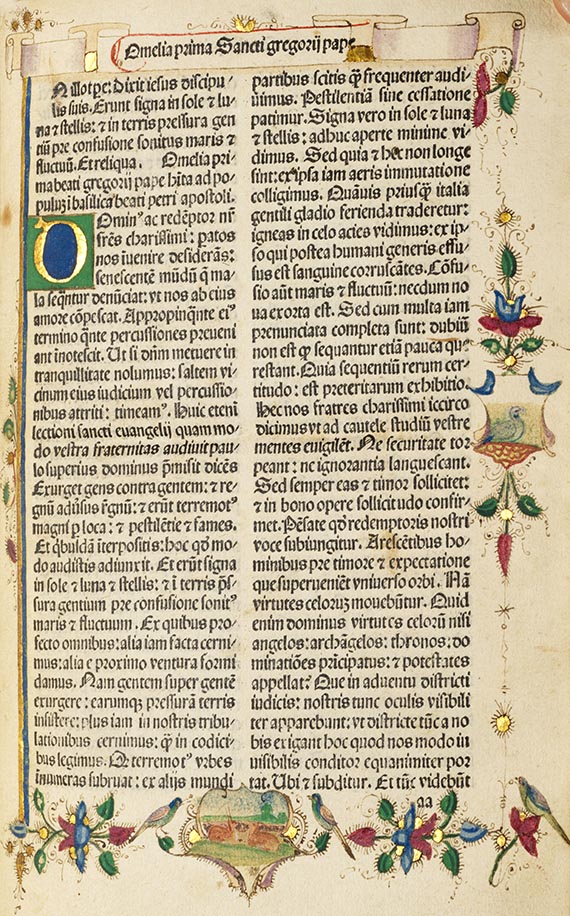 Omelia prima Sancti gregorij pape
N illo tpe: Dixit iesus discipu/
lis suis. Erunt signa in sole ⁊ lu/
na ⁊ stellis: ⁊ in terris pressura gen
tiū pre confusione sonitus maris ⁊
fluctuū. Et reliqua. Omelia pri/
ma beati gregorij pape hīta ad po/
pulum in basilica beati petri apostoli.
Omin⁹ ac redēptor nr̄
fr̄es charissimi: paratos
nos īuenire desiderās:
senescentē mūdū q̄ ma/
la seqn̄tur denūciat: vt nos ab eius
amore cōpescat. Appropinqn̄te ei⁹
termino qn̄te percussiones preueni
ant īnotescit. Ut si dn̄m metuere in
tranquillitate nolumus: saltem vi/
cinum eius iudicium vel percussio/
nibus attriti: timeam⁹. Huic eteni
lectioni sancti euangelij quam mo/
do vestra fraternitas audiuit pau/
lo superius dominus p̄misit dicēs
Exurget gens contra gentem: ⁊ re/
gnū aduers⁹ rēgnū: ⁊ erūt terremot⁹
magni p loca: ⁊ pestilētie ⁊ fames.
Et qbuſdā īterpositis: hoc qd mo/
do audistis adiunxit. Et erūt signa
in sole ⁊ luna ⁊ stellis: ⁊ ī terris p̄s/
sura gentium pre confusione sonit⁹
maris ⁊ fluctuum. Ex quibus pro/
fecto omnibus: alia iam facta cerni/
mus: alia e proximo ventura formi
damus. Nam gentem super gentē
exurgere: earumque pressurā terris
insistere: plus iam in nostris tribu/
lationibus cernimus: q̄ in codici/
bus legimus. Qd terremot⁹ vrbes
inumeras subruat: ex alijs mundi
partibus scitis q̄ frequenter audi/
uimus. Pestilentiā sine cessatione
patimur. Signa vero in sole ⁊ luna
⁊ stellis: adhuc aperte minime vi/
dimus. Sed quia ⁊ hec non longe
sint: ex ipsa iam aeris immutatione
colligimus. Quāuis priusq̄ italia
gentili gladio ferienda traderetur:
igneas in celo acies vidimus: ex ip/
so qui postea humani generis effu/
sus est sanguine coruscātes. Cōfu/
sio aūt maris ⁊ fluctuū: necdum no
ua exorta est. Sed cum multa iam
prenunciata completa sunt: dubiū
non est q̄ sequantur etiā pauca que
restant. Quia sequentiū rerum cer/
titudo: est preteritarum exhibitio.
Hec nos fratres charissimi iccirco
dicimus vt ad cautele studiū vestre
mentes euigilēt. Ne securitate tor/
peant: ne ignorantia languescant.
Sed semper eas ⁊ timor sollicitet:
⁊ in bono opere sollicitudo confir/
met. Pēsate qd redemptoris nostri
voce subiungitur. Arescētibus ho/
minibus pre timore ⁊ expectatione
que superueniēt vniuerso orbi. Nā
virtutes celorum mouebūtur. Quid
enim dominus virtutes celorū nisi
angelos: archāgelos: thronos: do
minatiōes p̄ncipatus: ⁊ potestates
appellat? Que in aduentu districti
iudicis: nostris tunc oculis visibili
ter apparebunt: vt districte tūc a no
bis exigant hoc quod nos modo in
uisibilis conditor equanimiter por
tat. Ubi ⁊ subditur. Et tūc videbūt
aa